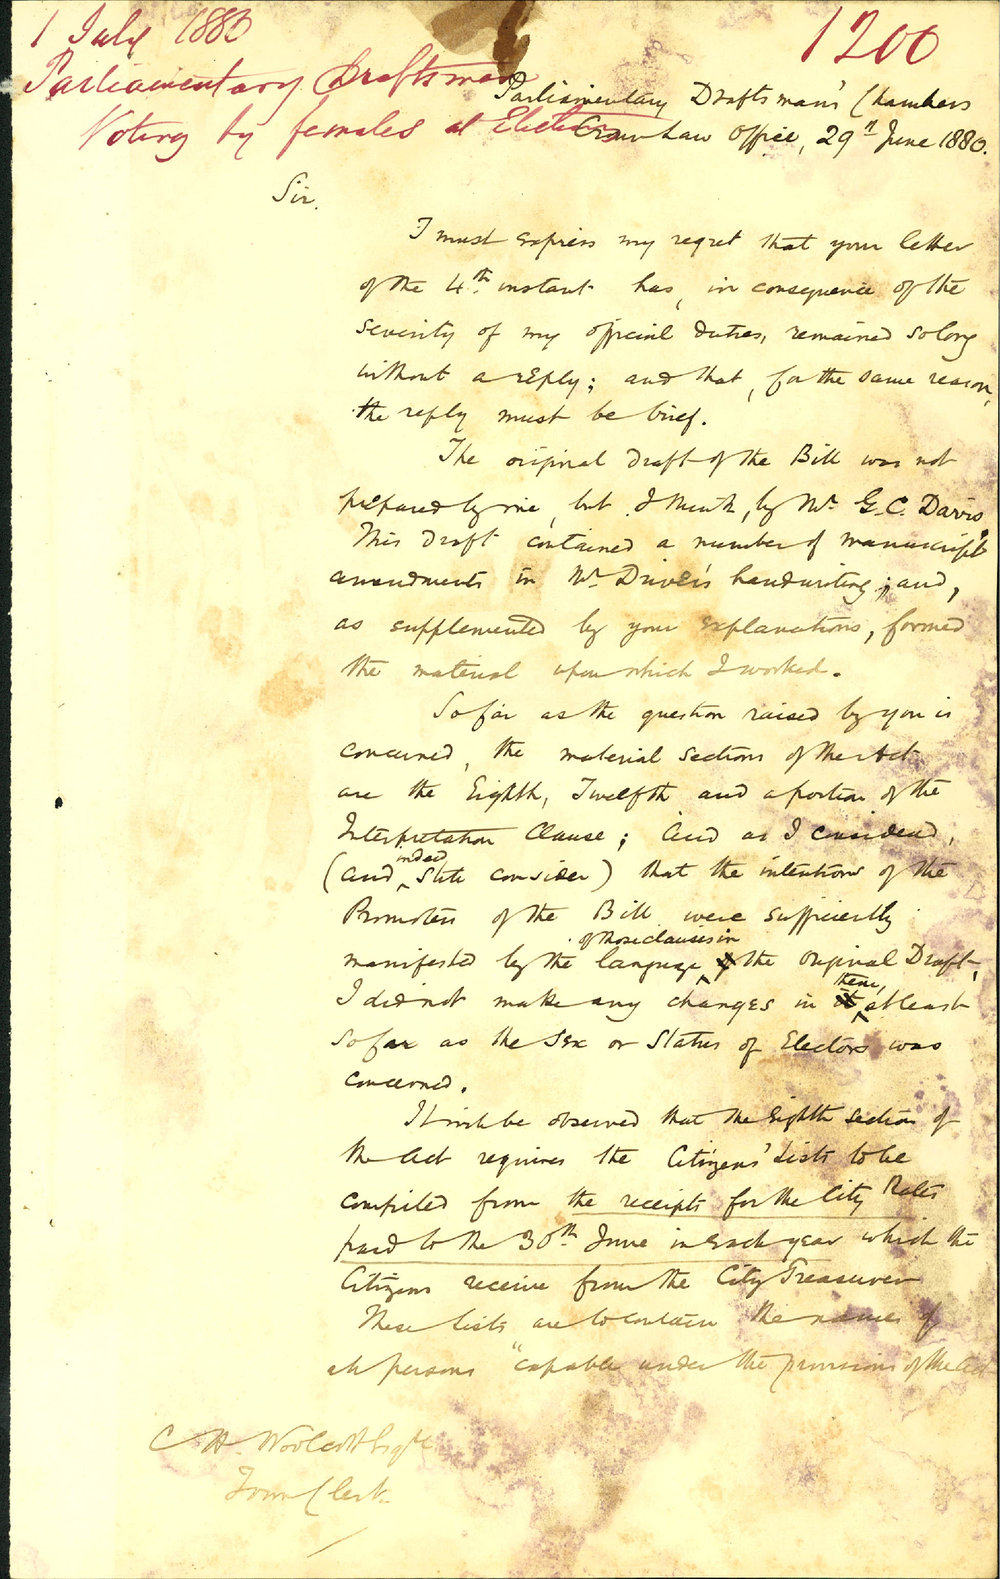 1 July 1880
1200
Parliamentary Draftsman
Voting by females at Elections
Parliamentary Draftsman's Chambers
Crown Law Office, 29th June 1880.
Sir.
I must express my regret that your letter
of the 4th instant has, in consequence of the
severity of my official duties, remained so long
without a reply; and that, for the same reason,
the reply must be brief.
The original draft of the Bill was not
prepared by me, but, I think, by Mr. G. C. Davis.
This draft contained a number of manuscript
amendments in Mr. Driver's handwriting; and,
as supplemented by your explanations, formed
the material upon which I worked.
So far as the question raised by you is
concerned, the material sections of the Act
are the Eighth, Twelfth and a portion of the
Interpretation Clause; And as I considered,
(and indeed still consider) that the intentions of the
Promoters of the Bill were sufficiently
manifested by the language of those clauses in the original Draft,
I did not make any changes in them, at least
so far as the Sex or Status of Electors was
concerned.
It will be observed that the Eighth section of
the Act requires the Citizens' Lists to be
compiled from the receipts for the City Rates
paid to the 30th June in each year which the
Citizens receive from the City Treasurer
These lists are to contain the names of
all persons "capable under the provisions of the Act
C H Woolcott Esqre
Town Clerk